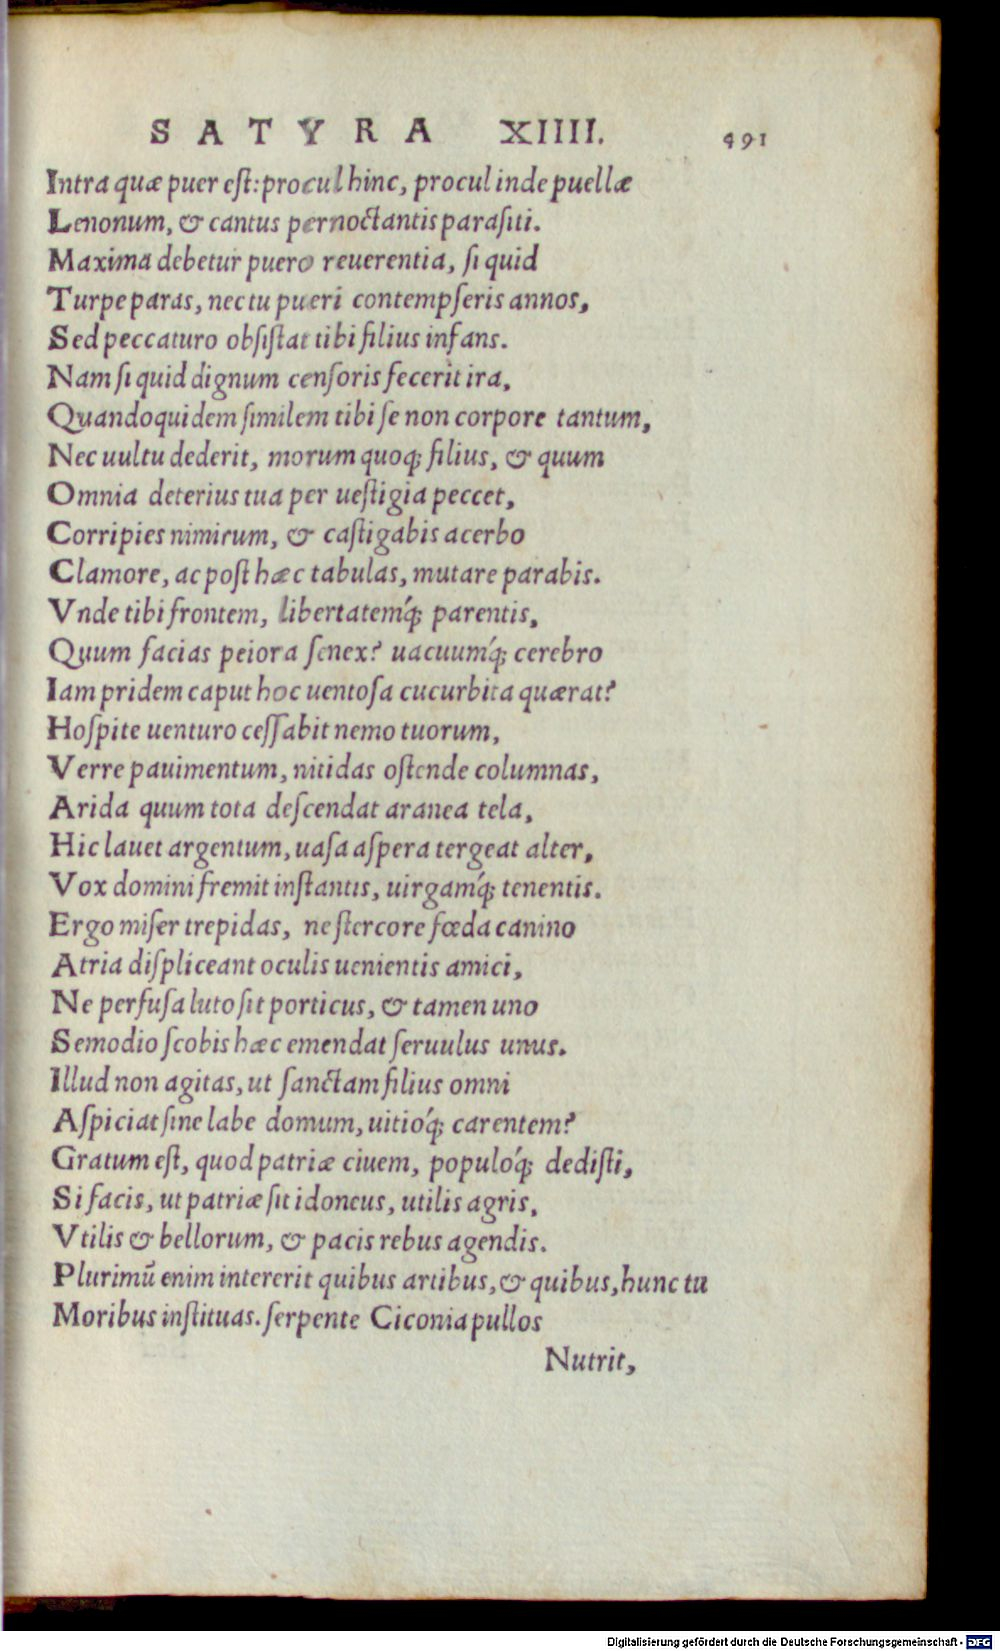 SATYRA XIIII. 491
Intra quæ puer eſt: procul hinc, procul inde puellæ
Lenonum, & cantus pernoctantis paraſiti.
Maxima debetur puero reuerentia, ſi quid
Turpe paras, nec tu pueri contempſeris annos,
Sed peccaturo obſiſtat tibi filius infans.
Nam ſi quid dignum cenſoris fecerit ira,
Quandoquidem ſimilem tibi ſe non corpore tantum,
Nec uultu dederit, morum quoqꝫ filius, & quum
Omnia deterius tua per ueſtigia peccet,
Corripies nimirum, & caſtigabis acerbo
Clamore, ac poſt hæc tabulas, mutare parabis.
Vnde tibi frontem, libertateḿqꝫ parentis,
Quum facias peiora ſenex? uacuuḿqꝫ cerebro
Iam pridem caput hoc uentoſa cucurbita quærat?
Hoſpite uenturo ceſſabit nemo tuorum,
Verre pauimentum, nitidas oſtende columnas,
Arida quum tota deſcendat aranea tela,
Hic lauet argentum, uaſa aſpera tergeat alter,
Vox domini fremit inſtantis, uirgaḿqꝫ tenentis.
Ergo miſer trepidas, ne ſtercore fœda canino
Atria diſpliceant oculis uenientis amici,
Ne perfuſa luto ſit porticus, & tamen uno
Semodio ſcobis hæc emendat ſeruulus unus.
Illud non agitas, ut ſanctam filius omni
Aſpiciat ſine labe domum, uitióqꝫ carentem?
Gratum eſt, quod patriæ ciuem, populóqꝫ dediſti,
Si facis, ut patriæ ſit idoneus, utilis agris,
Vtilis & bellorum, & pacis rebus agendis.
Plurimū enim intererit quibus artibus, & quibus, hunc tu
Moribus inſtituas. ſerpente Ciconia pullos
Nutrit,
Digitalisierung gefördert durch die Deutsche Forschungsgemeinschaft - DFG